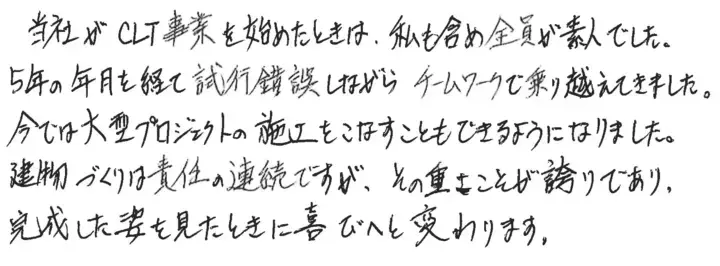 当社がCLT事業を始めたときは、私も含め全員が素人でした。
5年の年月を経て試行錯誤しながらチームワークで乗り越えてきました。
今では大型プロジェクトの施工をこなすこともできるようになりました。
建物づくりは責任の連続ですが、その重さこそが誇りであり、
完成した姿を見たときに喜びへと変わります。